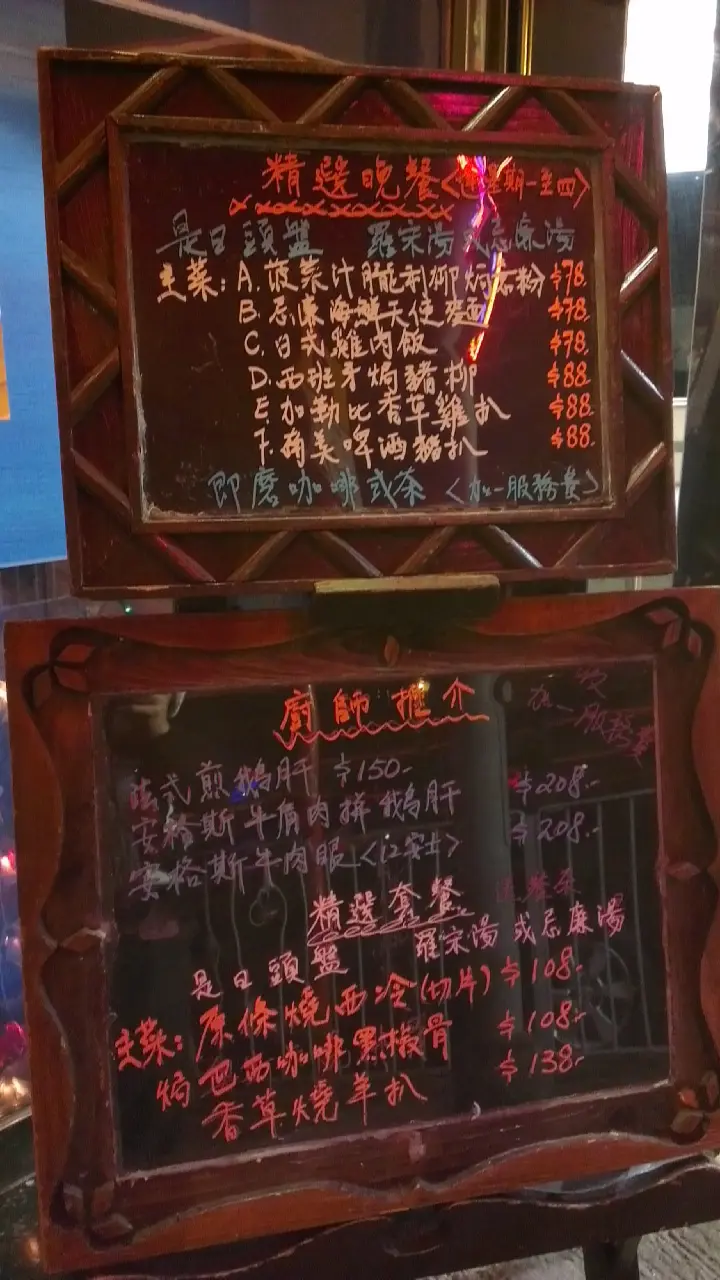 精選晚餐<逢星期一至四>
是日頭盤 羅宋湯或忌廉湯
主菜: A. 菠菜汁龍利柳焗意粉 $78.
B. 忌廉海鮮天使麵 $78.
C. 日式雞肉飯 $78.
D. 西班牙焗豬柳 $88.
E. 加勒比香草雞扒 $88.
F. 南美啤酒豬扒 $88.
即磨咖啡或茶 <加一服務費>
廚師推介
加一服務費
法式煎鵝肝 $150-
安格斯牛肩肉拼鵝肝 $208.-
安格斯牛肉眼<12安士> $208.-
精選套餐
是日頭盤 羅宋湯 或忌廉湯
主菜: 原條燒西冷(切片) $108-
焗巴西咖啡黑椒骨 $108-
香草燒羊扒 $138-